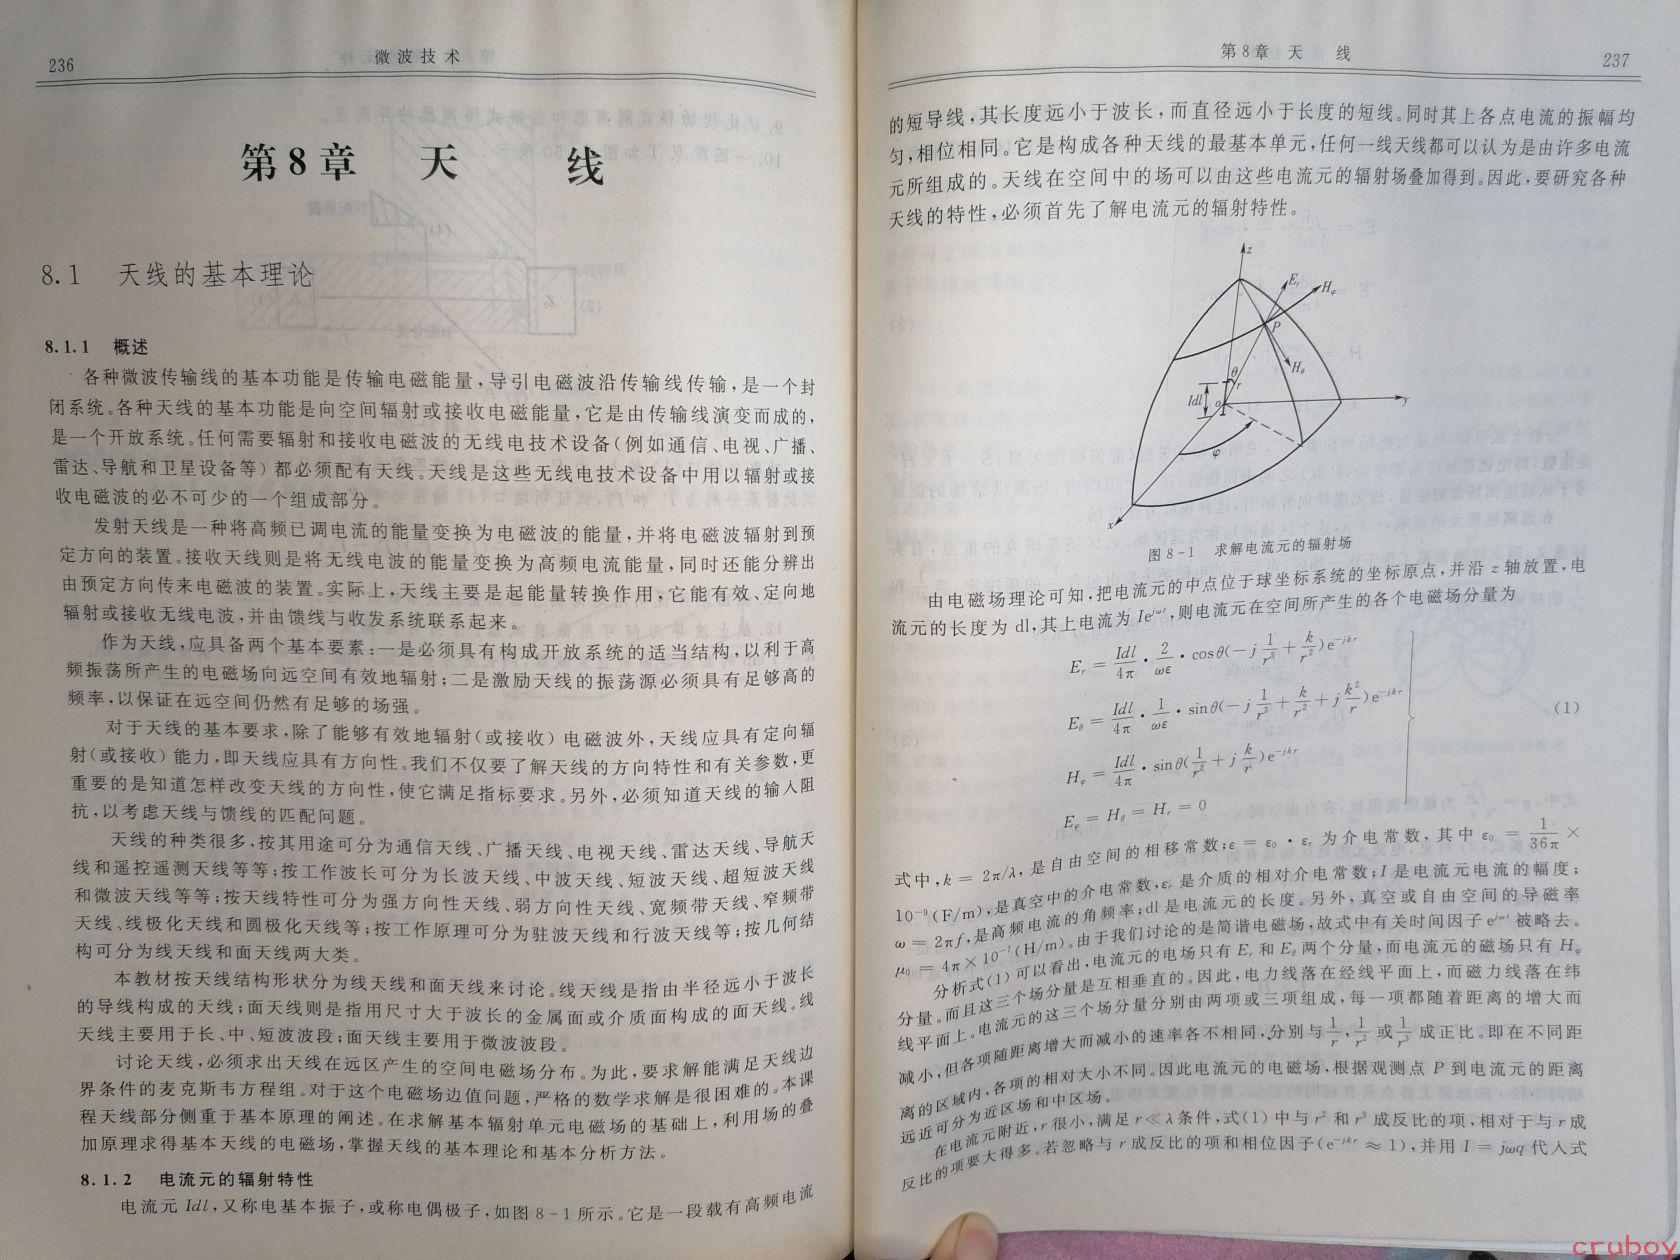 236
微波技术
第8章 天 线
8.1 天线的基本理论
8.1.1 概述
各种微波传输线的基本功能是传输电磁能量,导引电磁波沿传输线传输,是一个封
闭系统。各种天线的基本功能是向空间辐射或接收电磁能量,它是由传输线演变而成的,
是一个开放系统。任何需要辐射和接收电磁波的无线电技术设备(例如通信、电视、广播、
雷达、导航和卫星设备等)都必须配有天线。天线是这些无线电技术设备中用以辐射或接
收电磁波的必不可少的一个组成部分。
发射天线是一种将高频已调电流的能量变换为电磁波的能量,并将电磁波辐射到预
定方向的装置。接收天线则是将无线电波的能量变换为高频电流能量,同时还能分辨出
由预定方向传来电磁波的装置。实际上,天线主要是起能量转换作用,它能有效、定向地
辐射或接收无线电波,并由馈线与收发系统联系起来。
作为天线,应具备两个基本要素:一是必须具有构成开放系统的适当结构,以利于高
频振荡所产生的电磁场向远空间有效地辐射;二是激励天线的振荡源必须具有足够高的
频率,以保证在远空间仍然有足够的场强。
对于天线的基本要求,除了能够有效地辐射(或接收)电磁波外,天线应具有定向辐
射(或接收)能力,即天线应具有方向性。我们不仅要了解天线的方向特性和有关参数,更
重要的是知道怎样改变天线的方向性,使它满足指标要求。另外,必须知道天线的输入阻
抗,以考虑天线与馈线的匹配问题。
天线的种类很多,按其用途可分为通信天线、广播天线、电视天线、雷达天线、导航天
线和遥控遥测天线等等;按工作波长可分为长波天线、中波天线、短波天线、超短波天线
和微波天线等等;按天线特性可分为强方向性天线、弱方向性天线、宽频带天线、窄频带
天线、线极化天线和圆极化天线等;按工作原理可分为驻波天线和行波天线等;按几何结
构可分为线天线和面天线两大类。
本教材按天线结构形状分为线天线和面天线来讨论。线天线是指由半径远小于波长
的导线构成的天线;面天线则是指用尺寸大于波长的金属面或介质面构成的面天线。线
天线主要用于长、中、短波波段;面天线主要用于微波波段。
讨论天线,必须求出天线在远区产生的空间电磁场分布。为此,要求解能满足天线边
界条件的麦克斯韦方程组。对于这个电磁场边值问题,严格的数学求解是很困难的。本课
程天线部分侧重于基本原理的阐述。在求解基本辐射单元电磁场的基础上,利用场的叠
加原理求得基本天线的电磁场,掌握天线的基本理论和基本分析方法。
8.1.2 电流元的辐射特性
电流元 Idl,又称电基本振子,或称电偶极子,如图 8-1 所示。它是一段载有高频电流
第8章 天 线
237
的短导线,其长度远小于波长,而直径远小于长度的短线。同时其上各点电流的振幅均
匀,相位相同。它是构成各种天线的最基本单元,任何一线天线都可以认为是由许多电流
元所组成的。天线在空间中的场可以由这些电流元的辐射场叠加得到。因此,要研究各种
天线的特性,必须首先了解电流元的辐射特性。
z
Eᵣ
Hφ
P
Hθ
θ
r
Idl
o
y
φ
x
图 8-1 求解电流元的辐射场
由电磁场理论可知,把电流元的中点位于球坐标系统的坐标原点,并沿 z 轴放置,电
流元的长度为 dl,其上电流为 Ie^{jωt},则电流元在空间所产生的各个电磁场分量为
Eᵣ = Idl/4π · 2/ωε · cosθ(−j 1/r³ + k/r²)e^{−jkr}
Eθ = Idl/4π · 1/ωε · sinθ(−j 1/r³ + k/r² + j k²/r)e^{−jkr}
(1)
Hφ = Idl/4π · sinθ(1/r² + j k/r)e^{−jkr}
Eφ = Hθ = Hᵣ = 0
式中,k = 2π/λ,是自由空间的相移常数;ε = ε₀ · εᵣ 为介电常数,其中 ε₀ = 1/36π ×
10⁻⁹(F/m),是真空中的介电常数,εᵣ 是介质的相对介电常数;I 是电流元电流的幅度;
ω = 2πf,是高频电流的角频率;dl 是电流元的长度。另外,真空或自由空间的导磁率
μ₀ = 4π×10⁻⁷(H/m)。由于我们讨论的是简谐电磁场,故式中有关时间因子 e^{jωt} 被略去。
分析式(1)可以看出,电流元的电场只有 Eᵣ 和 Eθ 两个分量,而电流元的磁场只有 Hφ
分量。而且这三个场分量是互相垂直的。因此,电力线落在经线平面上,而磁力线落在纬
线平面上。电流元的这三个场分量分别由两项或三项组成,每一项都随着距离的增大而
减小,但各项随距离增大而减小的速率各不相同,分别与 1/r,1/r² 或 1/r³ 成正比。即在不同距
离的区域内,各项的相对大小不同。因此电流元的电磁场,根据观测点 P 到电流元的距离
远近可分为近区场和中区场。
在电流元附近,r 很小,满足 r≪λ 条件,式(1)中与 r² 和 r³ 成反比的项,相对于与 r 成
反比的项要大得多。若忽略与 r 成反比的项和相位因子(e^{−jkr} ≈ 1),并用 I = jωq 代入式
cruboy